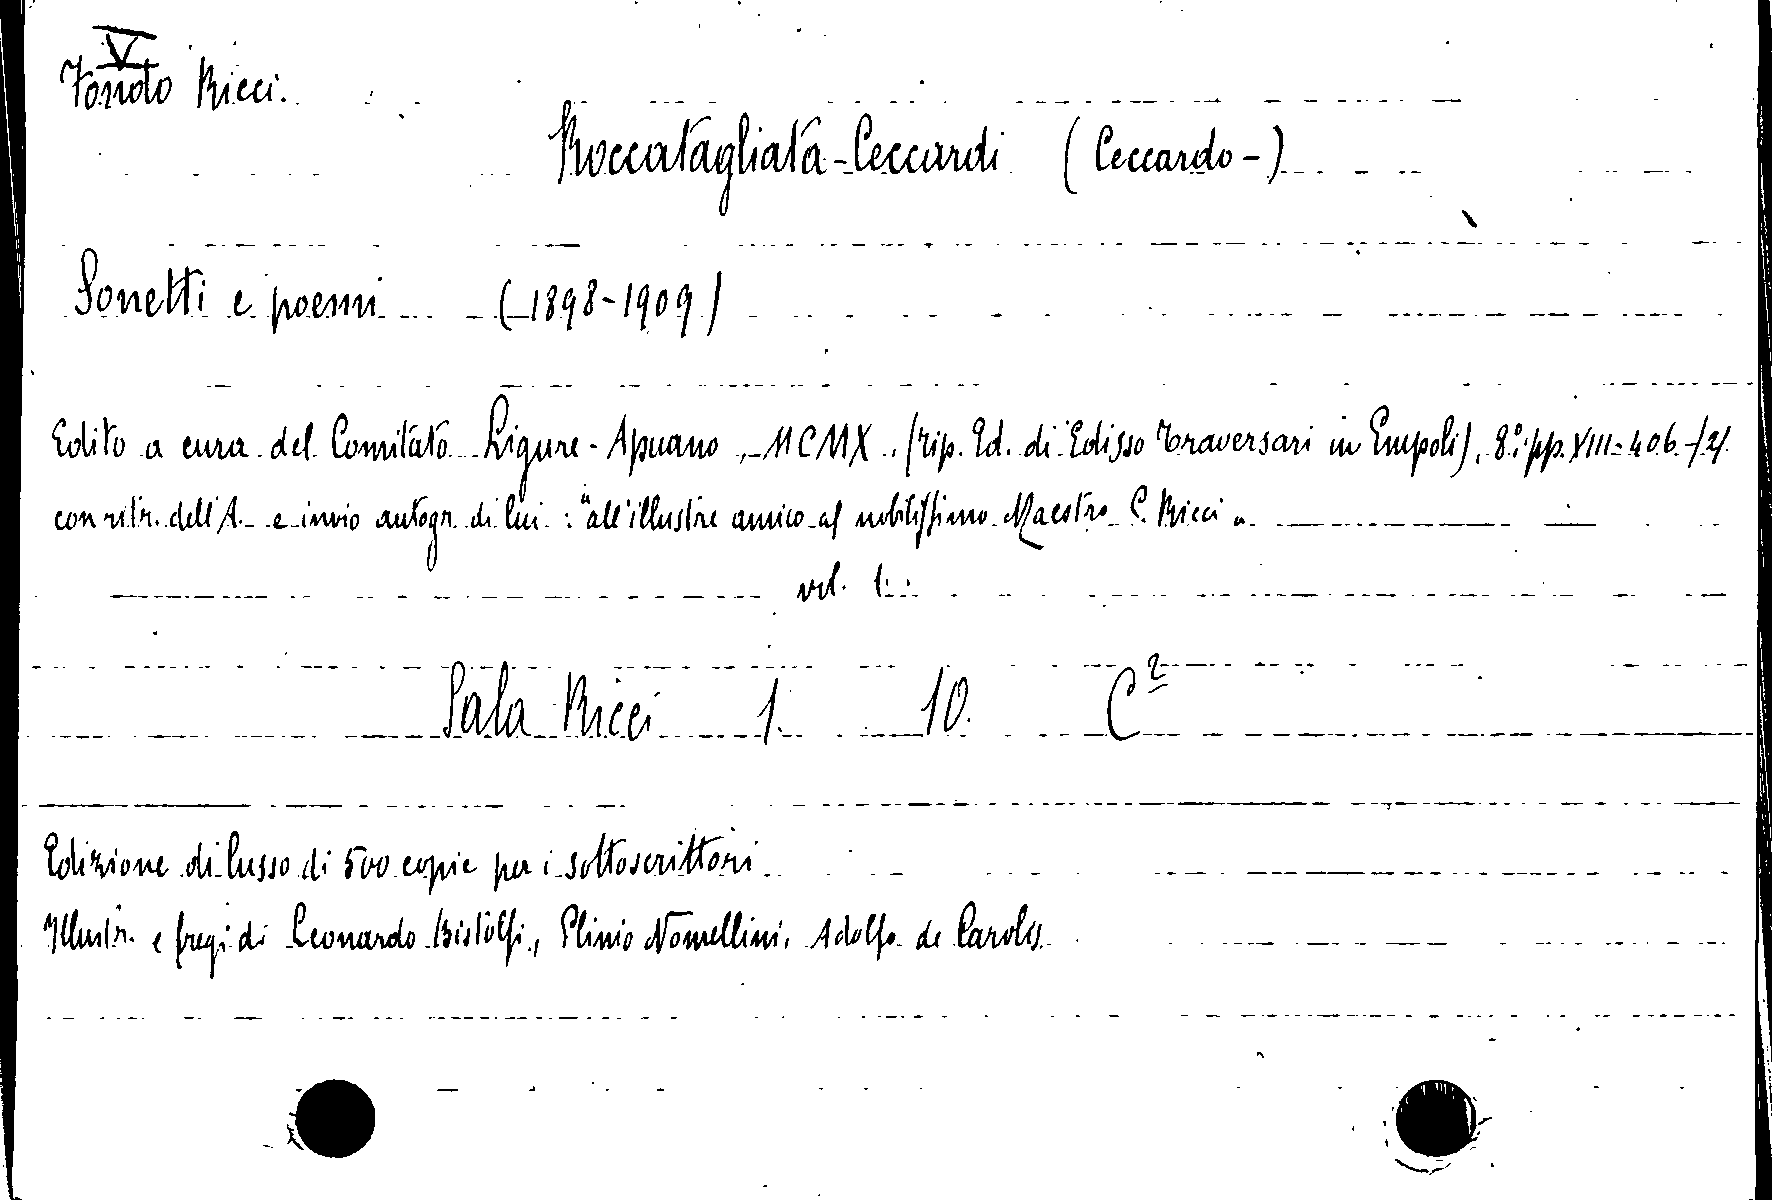 V
Fondo Ricci.
Roccatagliata-Ceccardi (Ceccardo-)
Sonetti e poemi (1898-1909)
Edito a cura del Comitato Ligure-Apuano, MCMX. (tip. Ed. di Edisso Traversari in Empoli), 8.° pp. XIII-406-/2/
con ritr. dell'A. e invio autogr. di lui: "all'illustre amico al nobilissimo Maestro C. Ricci".
vol. 1.
Sala Ricci 1. 10. C²
Edizione di lusso di 500 copie per i sottoscrittori
Illustr. e fregi di Leonardo Bistolfi, Plinio Nomellini, Adolfo de Carolis